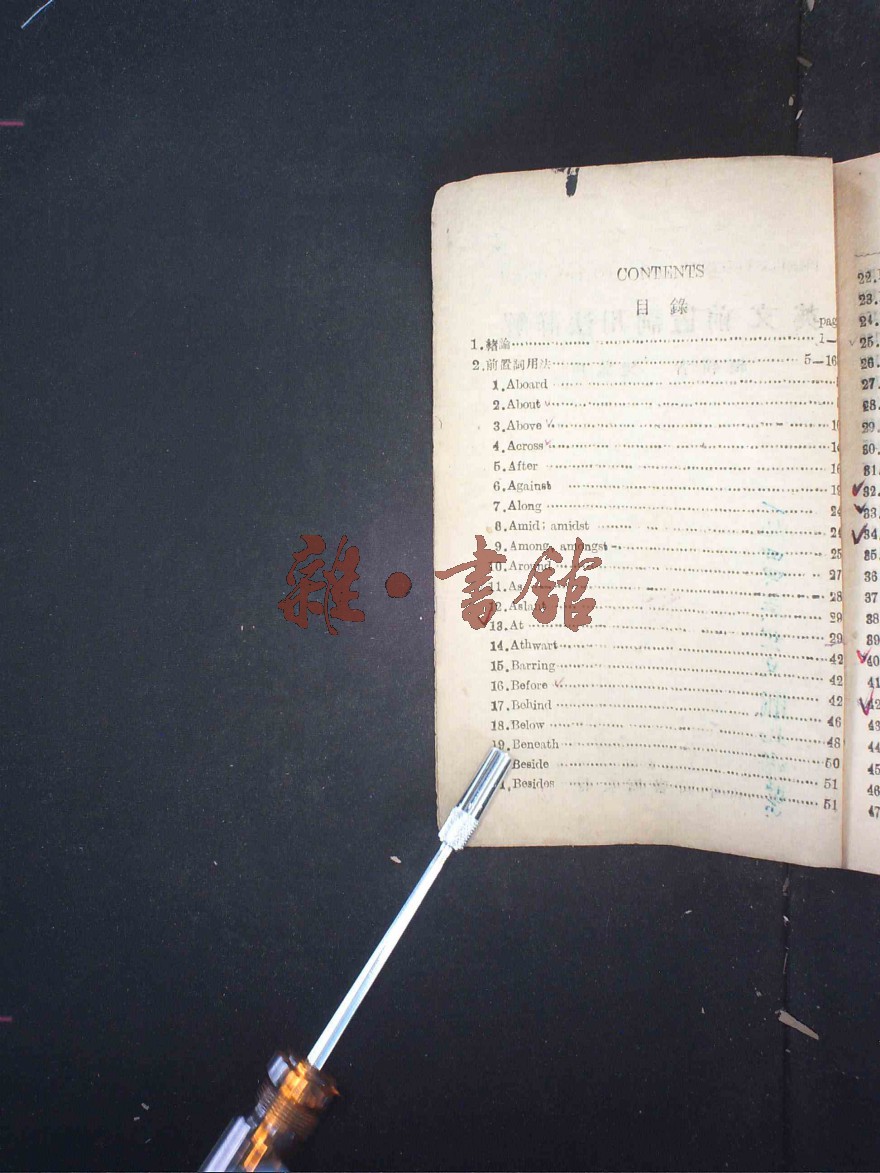 CONTENTS
目錄
pag
1.緒論 1—
2.前置詞用法 5—16
1.Aboard
2.About
3.Above 1
4.Across 1
5.After 16
6.Against 19
7.Along 24
8.Amid; amidst 24
9.Among, amongst 25
10.Around 27
11.As 28
12.Aslant 29
13.At 29
14.Athwart 42
15.Barring 42
16.Before 42
17.Behind 46
18.Below 48
19.Beneath 50
Beside 51
1.Besides 51
22.
23.
24.
25.
26.
27.
28.
29.
30.
31.
32.
33.
34.
35.
36
37
38
39
40
41
42
43
44
45
46
47
雜·書館